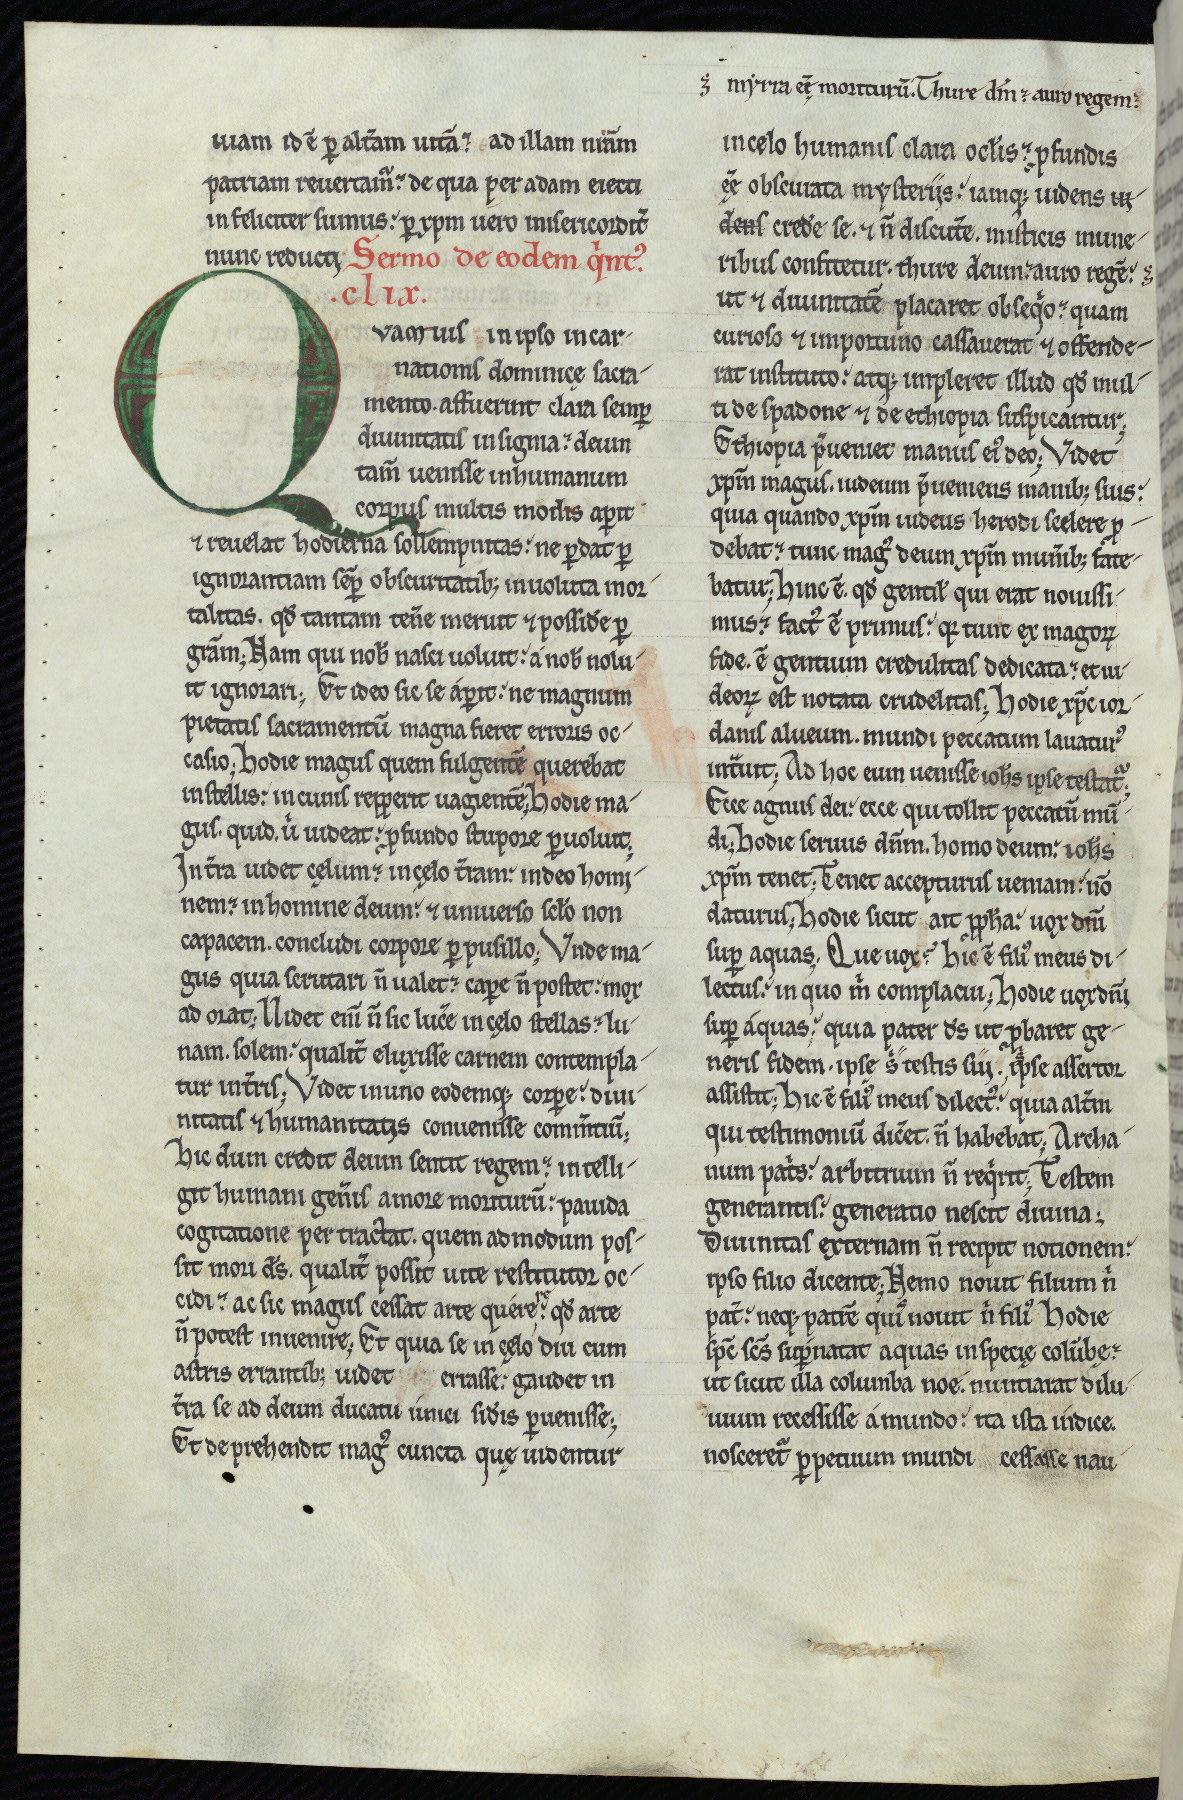 ʒ myrra eē moriturū. Thure dm̄ ⁊ auro regem:
uiam id ē p̲ alt̄am uitā ⁊ ad illam nrā̄m
patriam reuertam̃: de qua per adam eiecti
infeliciter sumus: p̲ xp̄m uero misericordit̄
nunc reducti; Sermo de eodem q̍nt⁹.
.clix.
Qvamuis in ipso incar-
nationis dominicę sacra-
mento. affuerint clara semp̲
diuinitatis insignia: deum
tam̄ uenisse in humanum
corpus multis modis ap̲it
⁊ reuelat hodierna sollempnitas: ne p̲dat p̲
ignorantiam sēp̲ obscuritatib; inuoluta mor-
talitas. qd̄ tantam ten̄e meruit ⁊ possid̄e p̲
grām; Nam qui nob̄ nasci uoluit: a nob̄ nolu-
it ignorari; Et ideo sic se ap̲it: ne magnum
pietatis sacramentū magna fieret erroris oc-
casio; Hodie magus quem fulgentē querebat
in stellis: in cunis repp̲erit uagientē; Hodie ma-
gus. quid. u̍ uideat: p̲fundo stupore p̲uoluit;
In t̄ra uidet cęlum: in cęlo t̄ram: in deo homi-
nem: in homine deum: ⁊ uniuerso sc̄lo non
capacem. concludi corpore p̲pusillo; Vnde ma-
gus quia scrutari n̄ ualet: cap̲e n̄ potest: mox
adorat; Uidet eni̅ n̄ sic luc̄e in cęlo stellas: lu-
nam. solem: qualit̄ eluxisse carnem contempla-
tur in t̄ris; Videt in uno eodemq; corp̲e: diui-
nitatis ⁊ humanitatis conuenisse com̄tiū;
Hic dum credit deum sentit regem: intelli-
git humani gen̄is amore moriturū: pauida
cogitatione pertractat. quemadmodum pos-
sit mori ds̄. qualit̄ possit uite restitutor oc-
cidi: ac sic magus cessat arte quere̍: qd̄ arte
n̄ potest inuenire; Et quia se in cęlo diu cum
astris errantib; uidet errasse: gaudet in
t̄ra se ad deum ducatu unici sid̄is p̲uenisse;
Et deprehendit mag⁹ cuncta quę uidentur
in cęlo humanis clara oc̄lis: p̲fundis
ēē obscurata mysteriis: iamq; uidens ui-
dens cred̄e se. ⁊ n̄ discut̄e. misticis mune-
ribus confitetur. thure deum: auro regē: ʒ
ut ⁊ diuinitatē placaret obseq̍o: quam
curioso ⁊ importuno cassauerat ⁊ offende-
rat instituto: atq; impleret illud qd̄ mul-
ti de spadone ⁊ de ethiopia suspicantur;
Ethiopia p̄ueniet manus ei⁹ deo; Videt
xp̄m magus. iudeum p̄ueniens manib; suis:
quia quando xp̄m iudeus herodi scelere p̲-
debat: tunc mag⁹ deum xp̄m mun̄ib; fate-
batur; Hinc ē. qd̄ gentil̄ qui erat nouissi-
mus: fact⁹ ē primus: qꝛ tunc ex magoꝝ
fide. ē gentium credulitas dedicata: et iu-
deoꝝ est notata crudelitas; Hodie xp̄c ior-
danis alueum. mundi peccatum lauatur⁹
intrauit; Ad hoc eum uenisse ioh̄s ipse testat̃;
Ecce agnus dei: ecce qui tollit peccatū mū-
di; Hodie seruus dn̄m. homo deum: ioh̄s
xp̄m tenet; Tenet accepturus ueniam: nō
daturus; Hodie sicut ait pp̲ha: uox dn̄i
sup̲ aquas; Que uox: Hic ē fili⁹ meus di-
lectus: in quo m̍ complacui; Hodie uox dn̄i
sup̲ aquas: quia pater ds̄ ut p̲baret ge-
neris fidem. ipse s̄ testis sui. ipse assertor
assistit; Hic ē fili⁹ meus dilect⁹: quia alt̄m
qui testimoniū dic̄et. n̄ habebat; Archa-
num pat̄s: arbitrium n̄ req̍rit; Testem
generantis: generatio nescit diuina;
Diuinitas externam n̄ recipit notionem:
ipso filio dicente; Nemo nouit filium n̍
pat̄: neq; patrē qui⁹ nouit n̍ fili⁹ Hodie
sp̄c sc̄s sup̲natat aquas in specię colūbę:
ut sicut illa columba noe. nuntiarat dilu-
uium recessisse a mundo: ita ista indice.
nosceret̃ p̲petuum mundi cessasse nau-